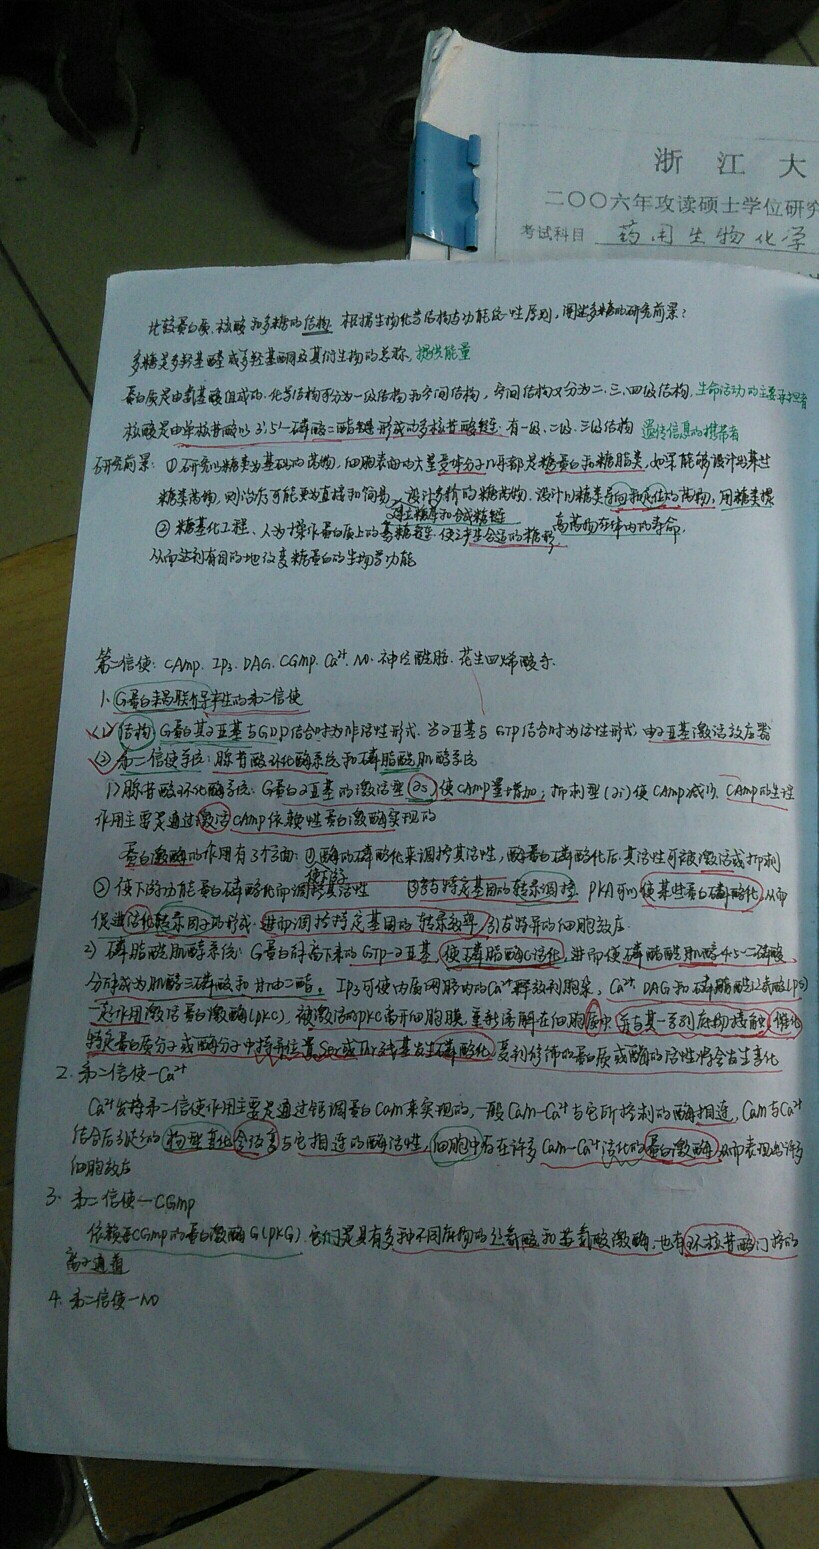 浙 江 大
二〇〇六年攻读硕士学位研究
考试科目 药用生物化学
比较蛋白质、核酸和多糖的结构 根据生物化学结构与功能统一性原则,阐述多糖的研究前景?
多糖是多羟基醛或多羟基酮及其衍生物的总称,提供能量
蛋白质是由氨基酸组成的.化学结构可分为一级结构和空间结构,空间结构又分为二、三、四级结构,生命活动的主要承担者
核酸是由单核苷酸以3',5'-磷酸二酯键形成的多核苷酸链.有一级、二级、三级结构 遗传信息的携带者
研究前景:①研究以糖类为基础的药物,细胞表面的大量受体分子几乎都是糖蛋白和糖脂类,如果能够设计出某些
糖类药物,则治疗可能更为直接和简易,设计多价的糖药物.设计以糖类导向和定位的药物,用糖类提
建立糖库和合成糖链 高药物在体内的寿命.
②糖基化工程、人为操作蛋白质上的 糖链.使之产生合适的糖形.
从而达到有目的地改变糖蛋白的生物学功能
第二信使:CAmp. Ip3. DAG. CGmp. Ca²⁺. NO. 神经酰胺. 花生四烯酸等.
1. G蛋白耦联介导产生的第二信使
(1)结构 G蛋白其α亚基与GDP结合时为非活性形式.当α亚基与GTP结合时为活性形式,由α亚基激活效应器
(2)第二信使系统:腺苷酸环化酶系统和磷脂酰肌醇系统
1)腺苷酸环化酶系统:G蛋白α亚基的激活型(αs)使CAmp量增加;抑制型(αi)使CAmp减少.CAmp的生理
作用主要是通过激活CAmp依赖性蛋白激酶实现的
蛋白激酶的作用有3个方面:①酶的磷酸化来调控其活性,酶蛋白磷酸化后,其活性可被激活或抑制
②使下游功能蛋白磷酸化而调控其活性 ③参与特定基因的转录调控. PKA可以使某些蛋白磷酸化,从而
促进活化转录因子的形成,进而调控特定基因的转录效率,引发特异的细胞效应.
2)磷脂酰肌醇系统:G蛋白解离下来的GTP-α亚基,使磷脂酶C活化,进而使磷脂酰肌醇4.5-二磷酸
分解成为肌醇三磷酸和甘油二酯. Ip3可使内质网腔内的Ca²⁺释放到胞浆, Ca²⁺, DAG和磷脂酰丝氨酸(ps)
一起作用激活蛋白激酶(pkc),被激活的pkc离开细胞膜,重新溶解在细胞质中.并与其一系列底物接触,催化
特定蛋白质分子或酶分子中特异位置Ser或Thr残基发生磷酸化,受到修饰的蛋白质或酶的活性将会发生变化
2. 第二信使—Ca²⁺
Ca²⁺发挥第二信使作用主要是通过钙调蛋白Cam来实现的,一般Cam-Ca²⁺与它所控制的酶相连,Cam与Ca²⁺
结合后引起的构型变化会改变与它相连的酶活性,细胞中存在许多Cam-Ca²⁺活化的蛋白激酶,从而表现出许多
细胞效应
3. 第二信使—CGmp
依赖于CGmp的蛋白激酶G(pKG).它们是具有多种不同底物的丝氨酸和苏氨酸激酶,也有环核苷酸门控的
离子通道
4. 第二信使—NO